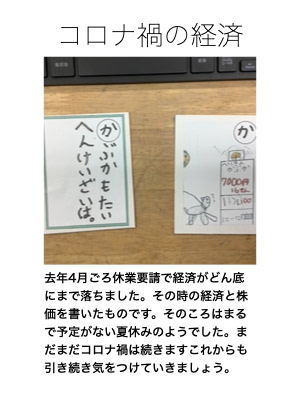 コロナ禍の経済
か
かぶかもたい
へんけいざいは。
か
7000円
去年4月ごろ休業要請で経済がどん底
にまで落ちました。その時の経済と株
価を書いたものです。そのころはまる
で予定がない夏休みのようでした。ま
だまだコロナ禍は続きますこれからも
引き続き気をつけていきましょう。